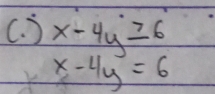 C.) x - 4y ≥ 6
x - 4y = 6